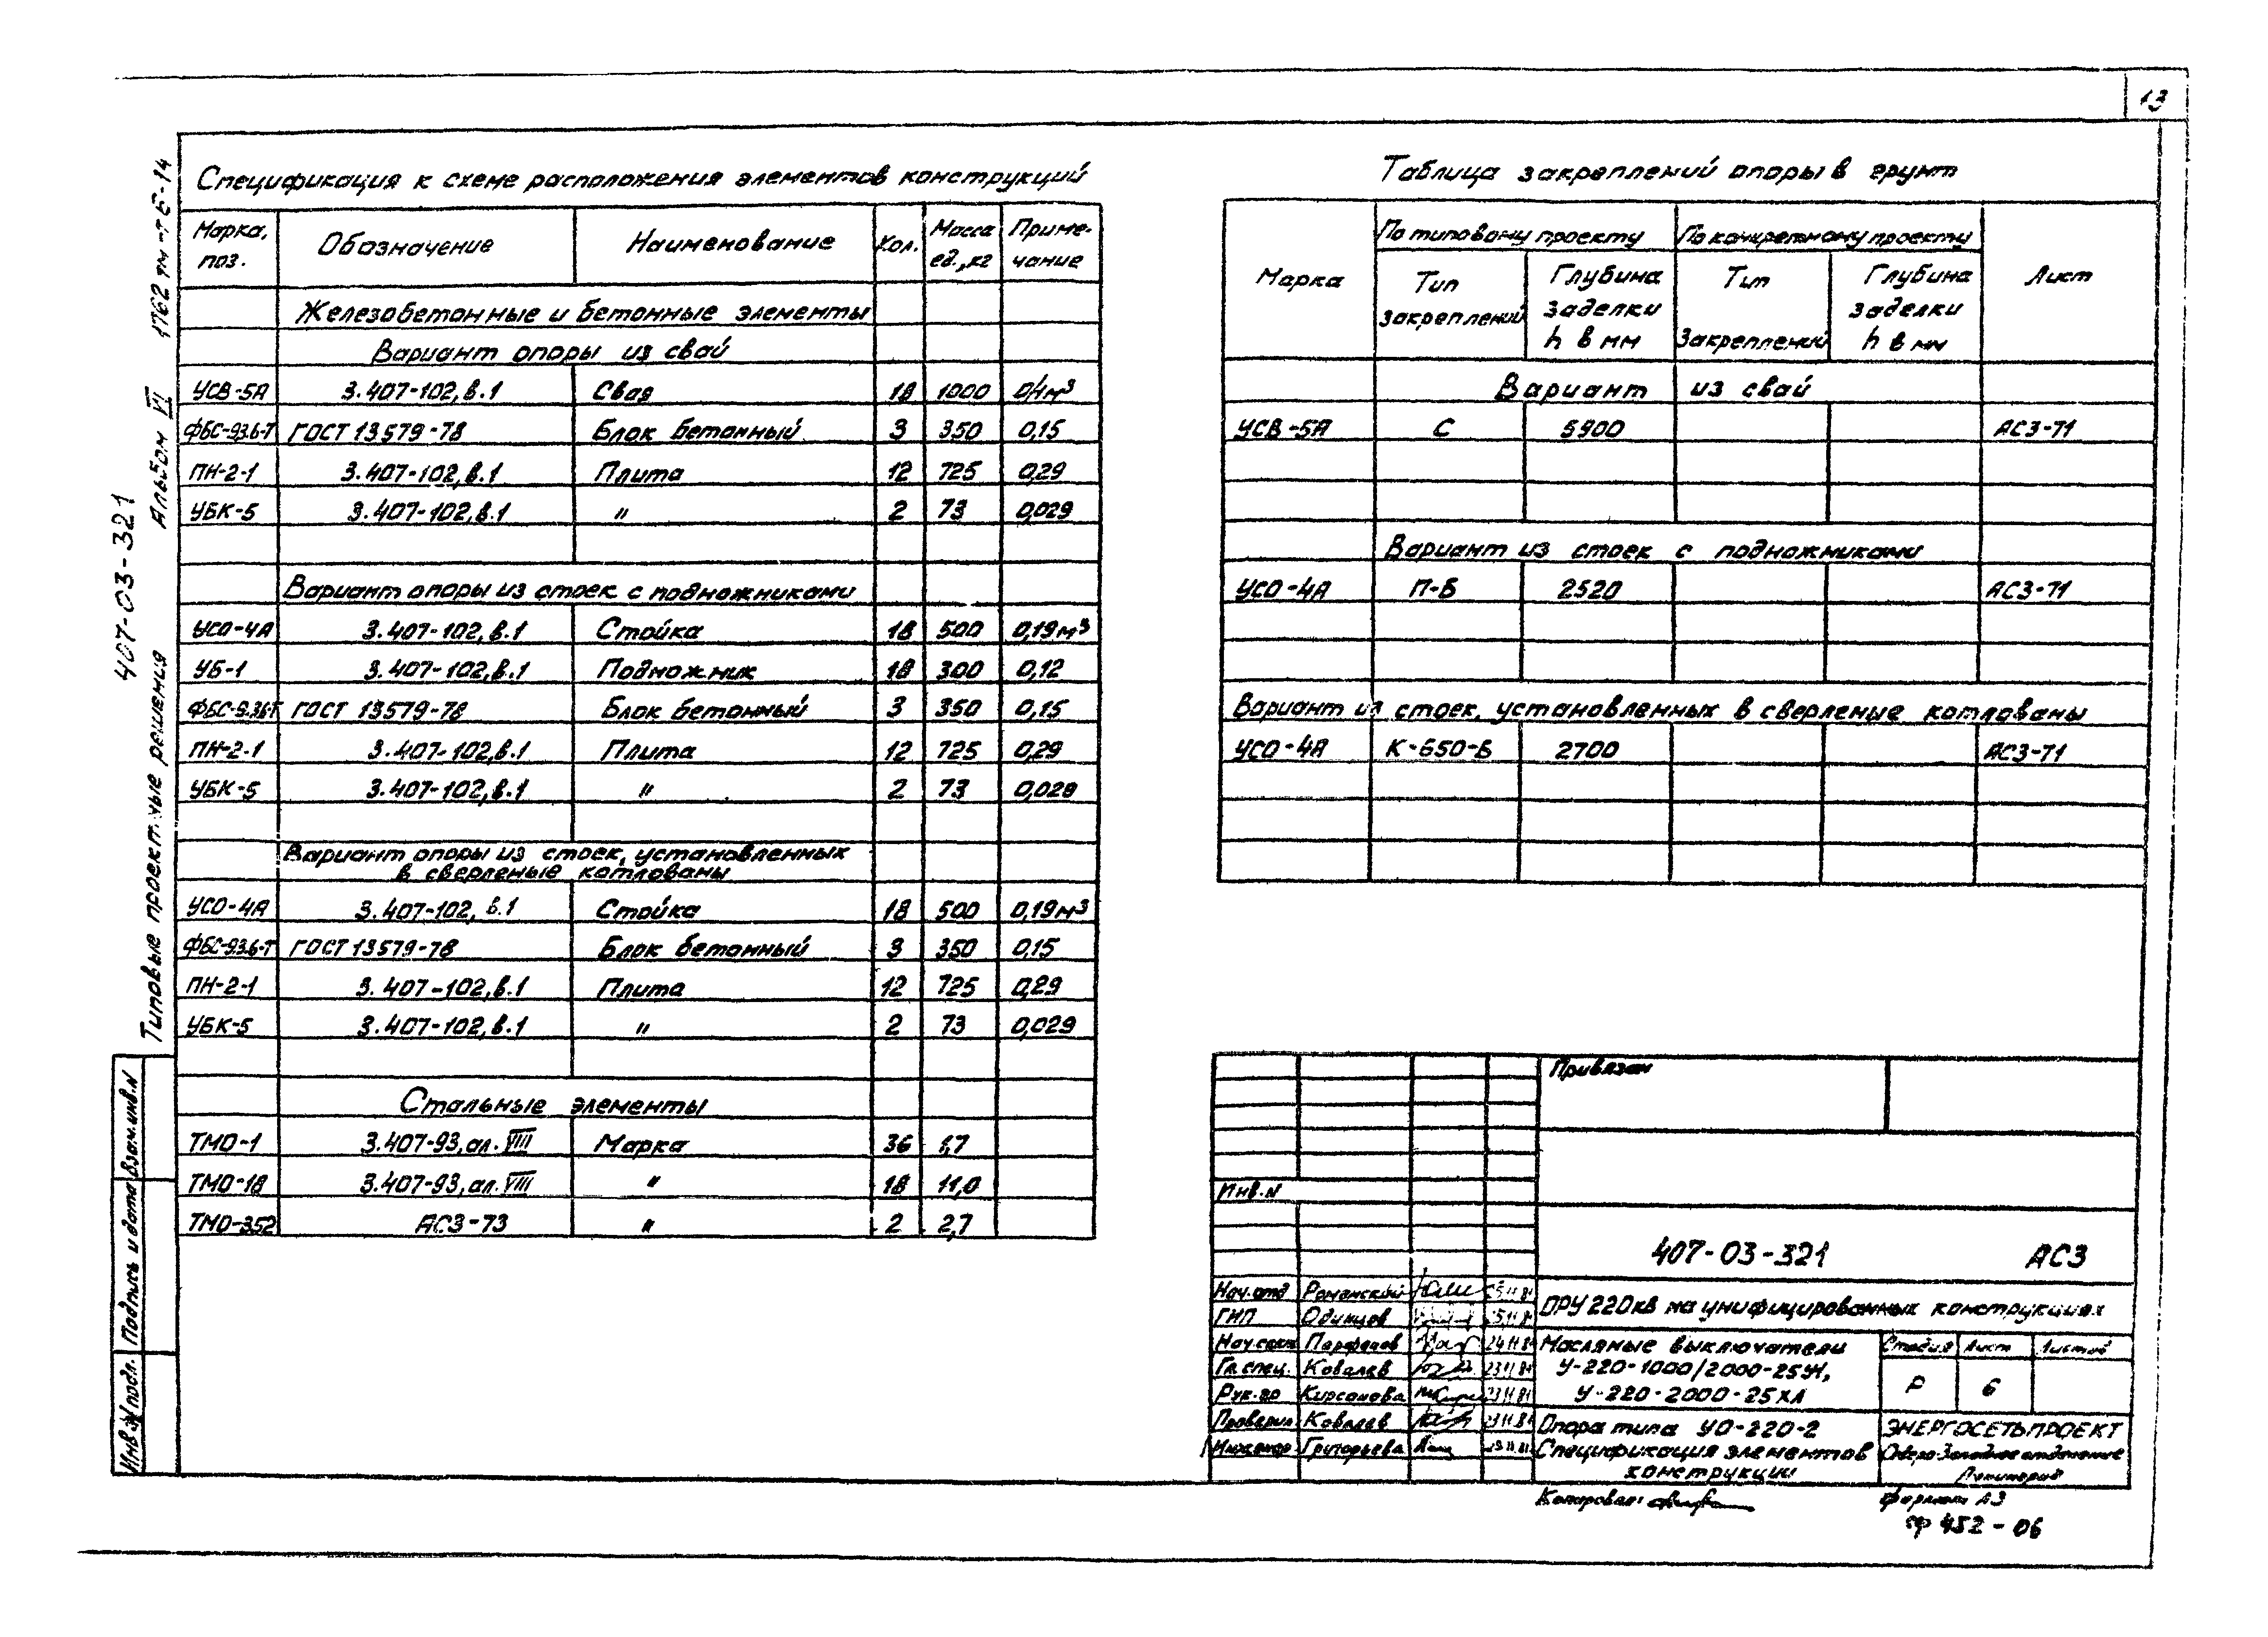 13
Спецификация к схеме расположения элементов конструкций
Марка, поз. Обозначение Наименование Кол. Масса ед., кг Приме-чание
Железобетонные и бетонные элементы
Вариант опоры из свай
УСВ-5А 3.407-102, в.1 Свая 18 1000 0,4м³
ФБС-9.3.6-Т ГОСТ 13579-78 Блок бетонный 3 350 0,15
ПН-2-1 3.407-102, в.1 Плита 12 725 0,29
УБК-5 3.407-102, в.1 " 2 73 0,029
Вариант опоры из стоек с подножниками
УСО-4А 3.407-102, в.1 Стойка 18 500 0,19м³
УБ-1 3.407-102, в.1 Подножник 18 300 0,12
ФБС-9.3.6-Т ГОСТ 13579-78 Блок бетонный 3 350 0,15
ПН-2-1 3.407-102, в.1 Плита 12 725 0,29
УБК-5 3.407-102, в.1 " 2 73 0,029
Вариант опоры из стоек, установленных
в сверленые котлованы
УСО-4А 3.407-102, в.1 Стойка 18 500 0,19м³
ФБС-9.3.6-Т ГОСТ 13579-78 Блок бетонный 3 350 0,15
ПН-2-1 3.407-102, в.1 Плита 12 725 0,29
УБК-5 3.407-102, в.1 " 2 73 0,029
Стальные элементы
ТМО-1 3.407-93, ал. VIII Марка 36 1,7
ТМО-18 3.407-93, ал. VIII " 18 11,0
ТМО-352 АС3-73 " 2 2,7
Таблица закреплений опоры в грунт
Марка По типовому проекту По конкретному проекту Лист
Тип закреплений Глубина заделки h в мм Тип закреплений Глубина заделки h в мм
Вариант из свай
УСВ-5А С 5900 АС3-71
Вариант из стоек с подножниками
УСО-4А П-Б 2520 АС3-71
Вариант из стоек, установленных в сверленые котлованы
УСО-4А К-650-Б 2700 АС3-71
Привязан
Инв. N
407-03-321 АС3
Нач. отд Романский
ГИП Одинцов
Нач. сект Парфенов 24.11.81
Гл. спец. Ковалев 23.11.81
Рук. гр Кирсанова 23.11.81
Проверил Ковалев 23.11.81
Инженер Григорьева
ОРУ 220кв на унифицированных конструкциях
Масляные выключатели
У-220-1000/2000-25У1,
У-220-2000-25ХЛ
Стадия Лист Листов
Р 6
Опора типа УО-220-2
Спецификация элементов
конструкции
ЭНЕРГОСЕТЬПРОЕКТ
Северо-Западное отделение
Ленинград
Копировал:
Формат А3
ср 452-06
407-03-321
Типовые проектные решения Альбом VI
Инв. N подл. Подпись и дата Взам. инв. N